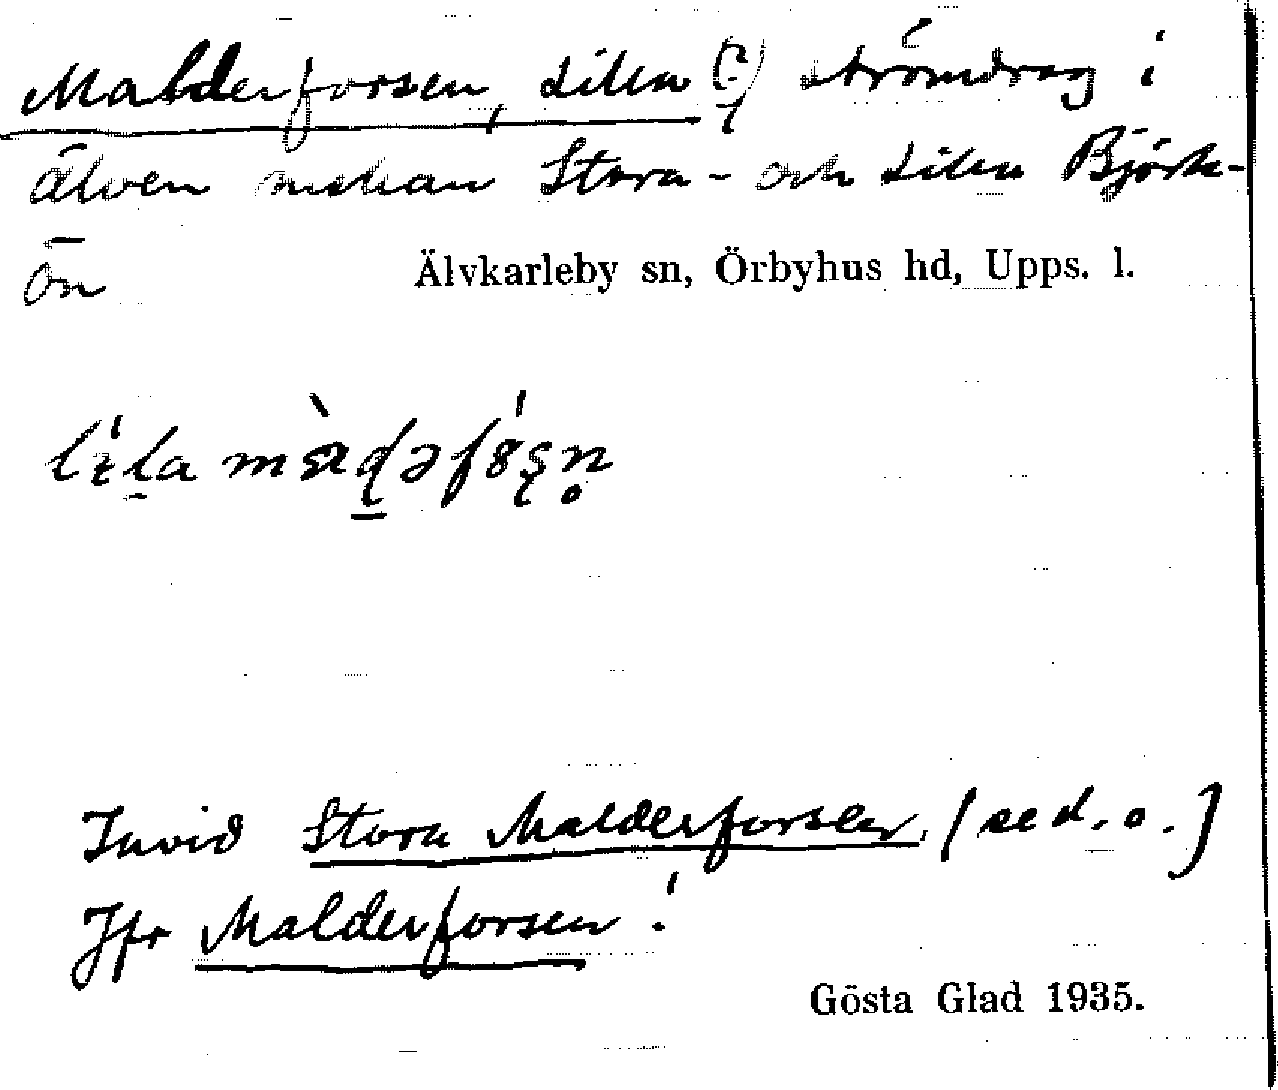 Malderforsen, Lilla (?) strömdrag i
älven mellan Stora- och Lilla Björk-
ön
Älvkarleby sn, Örbyhus hd, Upps. l.
Invid Stora Malderforsen. (se d. o.)
Jfr Malderforsen!
Gösta Glad 1935.